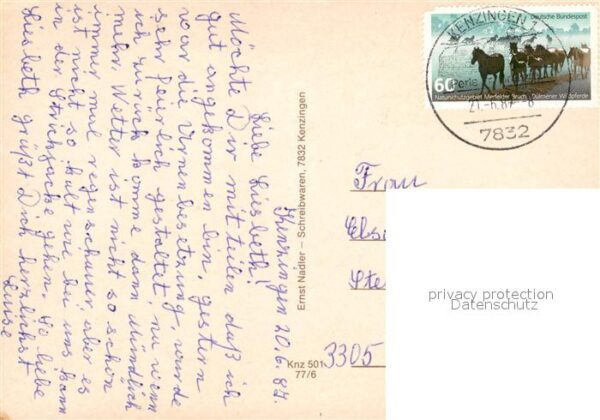 Kenzingen 20.6.87.
Liebe Liesbeth!
Möchte Dir mitteilen daß ich
gut angekommen bin, gestern
war die Urnenbesetzung, wurde
sehr feierlich gestaltet, na wenn
ich zurück komme dann mündlich
mehr. Wetter ist nicht so schön
immer mal regenschauer aber es
ist nicht so kalt wie bei uns kann
in der Strickjacke gehen. So liebe
Liesbeth grüßt Dich herzlichst
Luise
Ernst Nadler – Schreibwaren, 7832 Kenzingen
Knz 501
77/6
KENZINGEN 1
Perle
21.-6.87-8
7832
Deutsche Bundespost
60
Naturschutzgebiet Merfelder Bruch · Dülmener Wildpferde
Frau
3305
privacy protection
Datenschutz